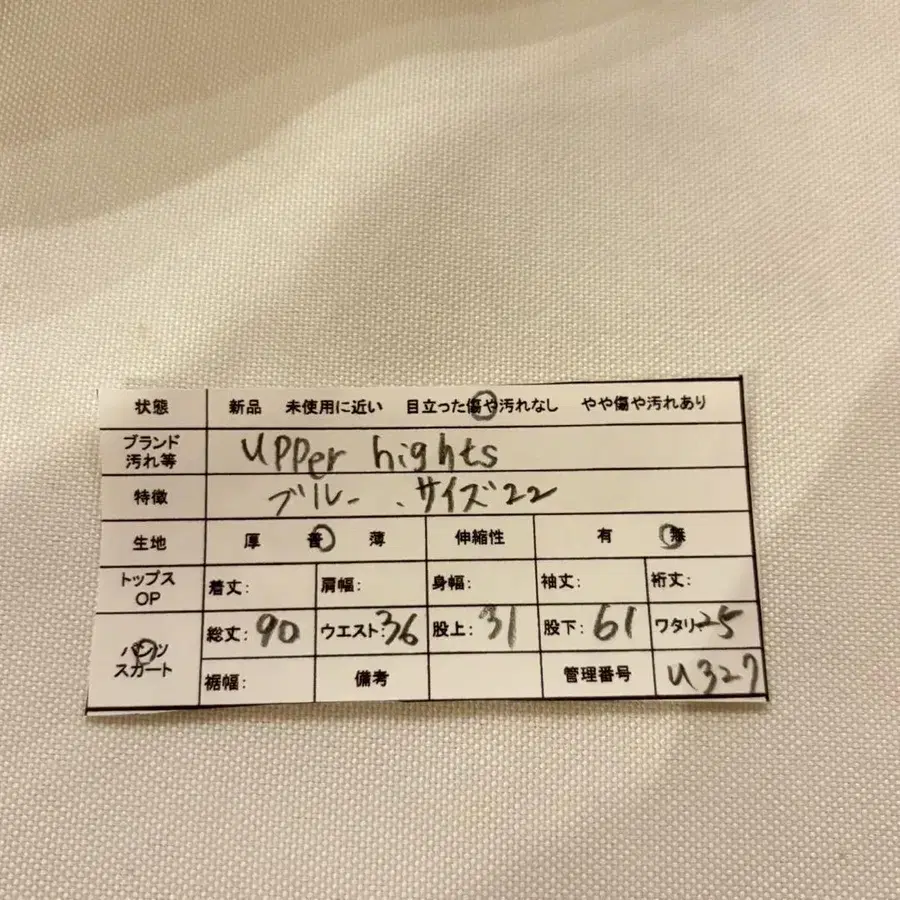 状態 新品 未使用に近い 目立った傷や汚れなし やや傷や汚れあり
ブランド
汚れ等 upper hights
特徴 ブルー、サイズ22
生地 厚 普 薄 伸縮性 有 無
トップス
OP 着丈: 肩幅: 身幅: 袖丈: 裄丈:
パンツ
スカート 総丈:90 ウエスト:36 股上:31 股下:61 ワタリ:25
裾幅: 備考 管理番号 U327